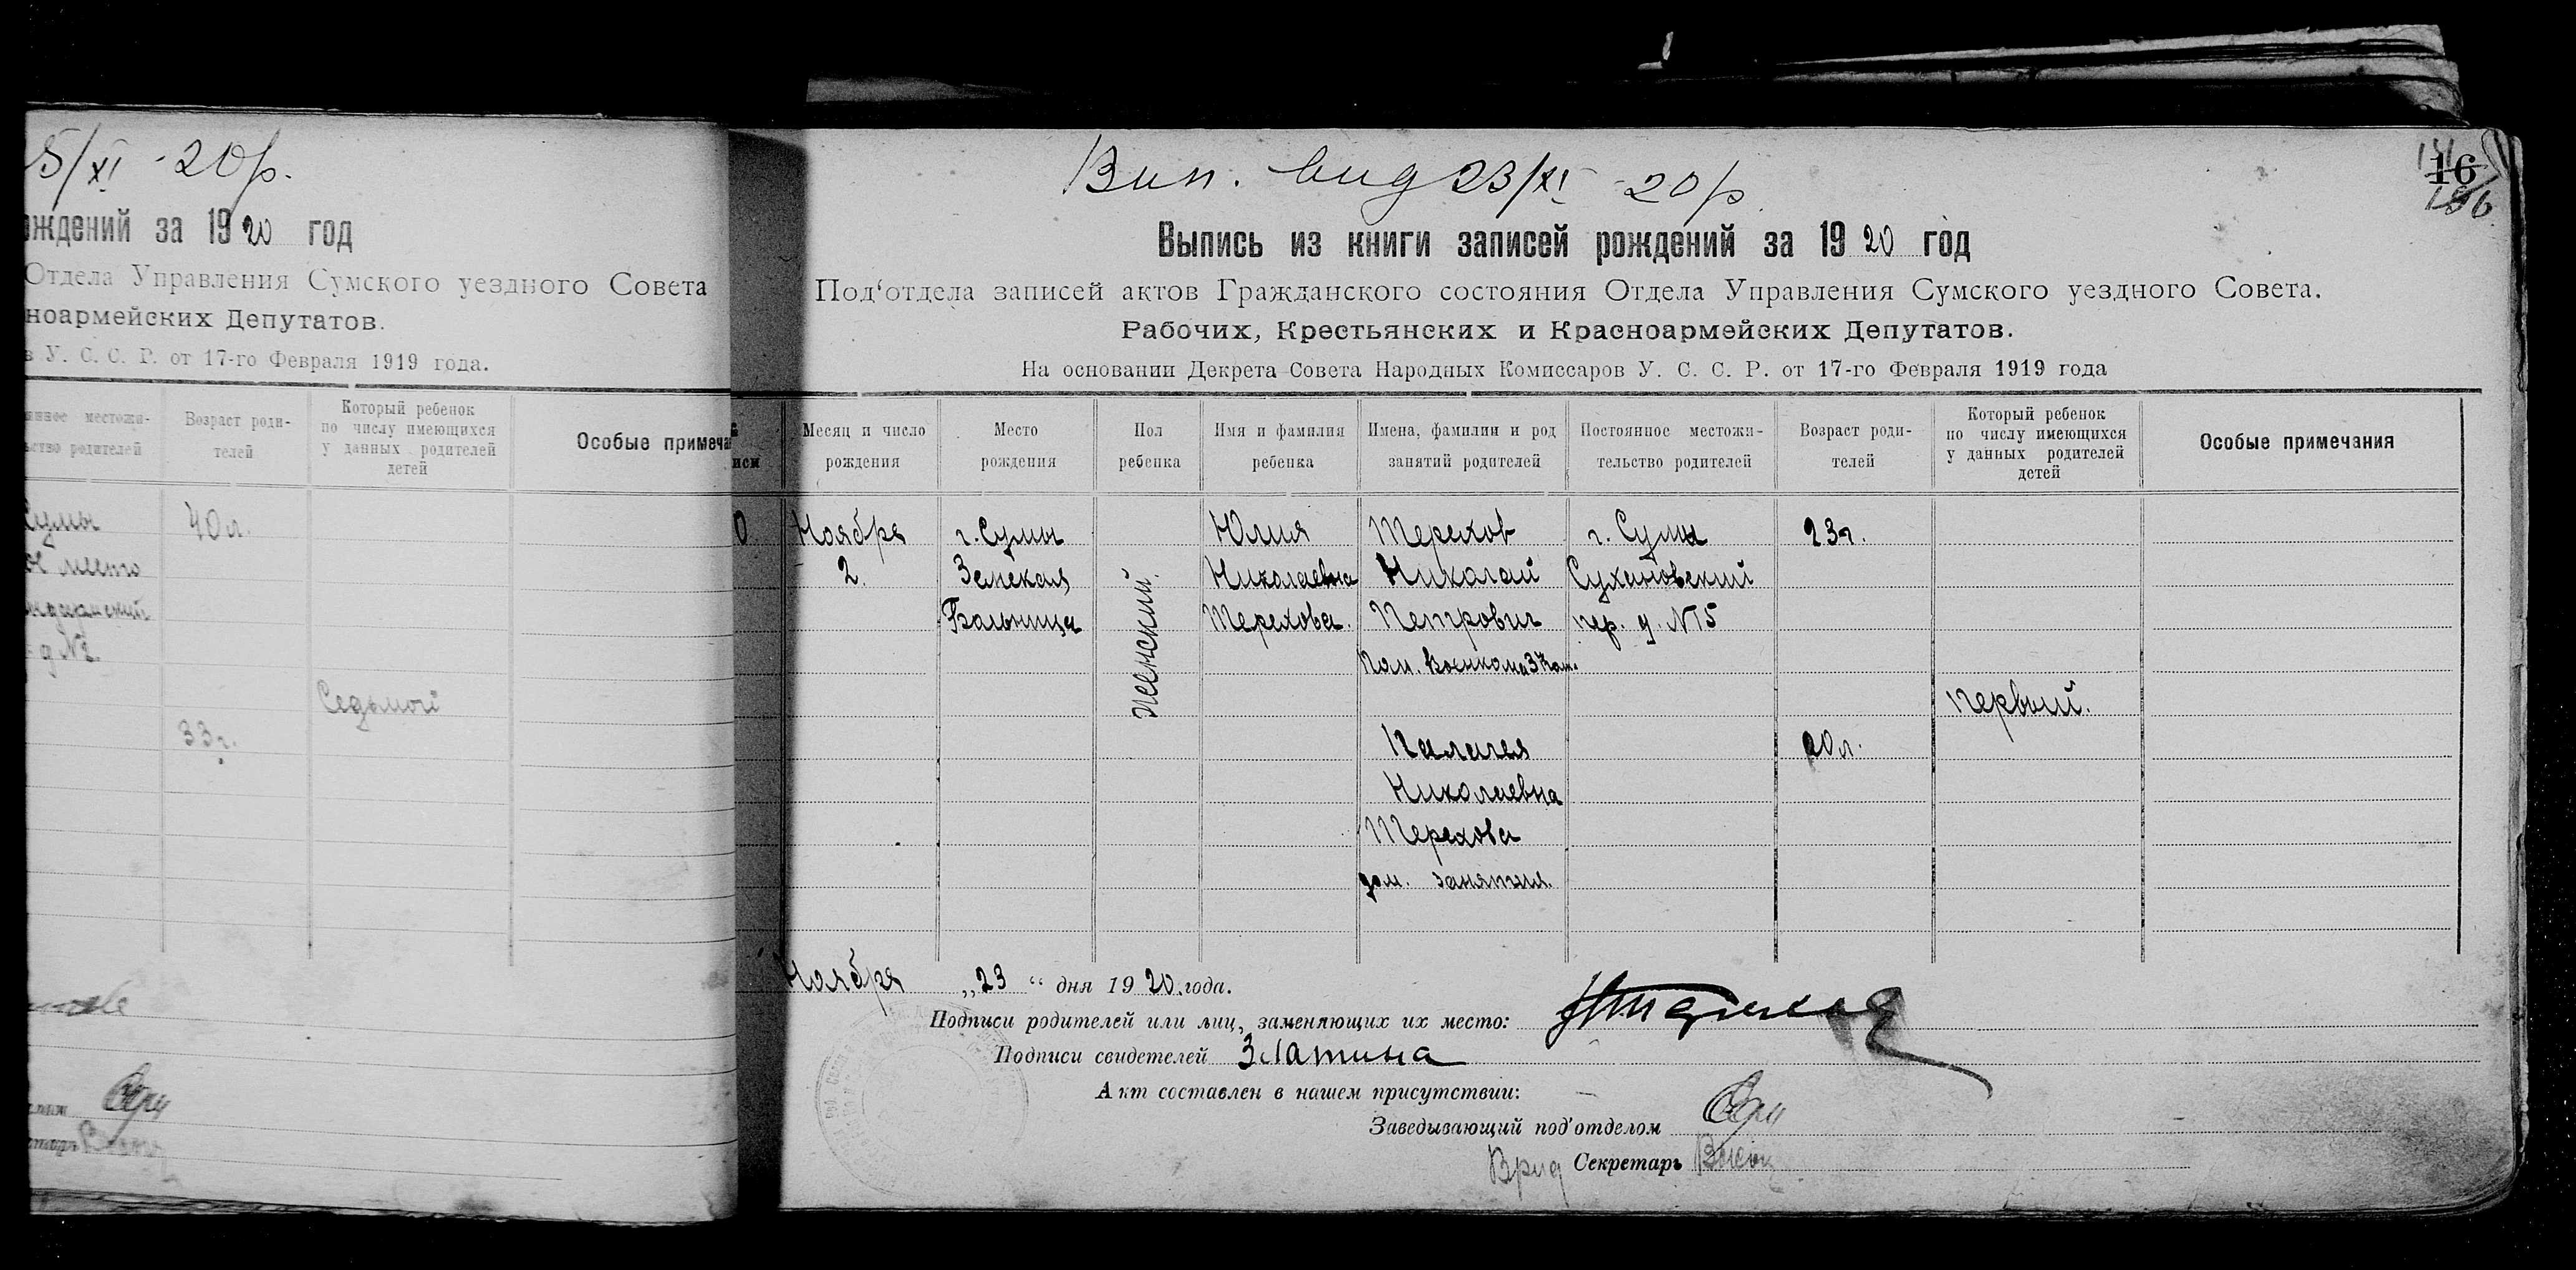 5/XI -20р.
ождений за 1920 год
Отдела Управления Сумского уездного Совета
ноармейских Депутатов.
в У. С. С. Р. от 17-го Февраля 1919 года.
янное местожи-
ьство родителей
Возраст роди-
телей
Который ребенок
по числу имеющихся
у данных родителей
детей
Особые примеча
Сумы
40 л.
место
д №2.
Седьмой
33 г.
16
156
Вип. вид 23/XI -20р.
Выпись из книги записей рождений за 1920 год
Под‘отдела записей актов Гражданского состояния Отдела Управления Сумского уездного Совета.
Рабочих, Крестьянских и Красноармейских Депутатов.
На основании Декрета Совета Народных Комиссаров У. С. С. Р. от 17-го Февраля 1919 года
иси
Месяц и число
рождения
Место
рождения
Пол
ребенка
Имя и фамилия
ребенка
Имена, фамилии и род
занятий родителей
Постоянное местожи-
тельство родителей
Возраст роди-
телей
Который ребенок
по числу имеющихся
у данных родителей
детей
Особые примечания
0
Ноября
2.
г. Сумы
Земская
Больница
Женский.
Юлия
Николаевна
Терехова.
Терехов
Николай
Петрович
Пом. Военкома
Палагея
Николаевна
Терехова
дом. занятия.
г. Сумы
Сухановский
пер. д. №5
23 г.
20 л.
первый.
Ноября „23“ дня 1920 года.
Подписи родителей или лиц, заменяющих их место:
Подписи свидетелей Златина
Акт составлен в нашем присутствии:
Заведывающий под‘отделом
Врид Секретарь